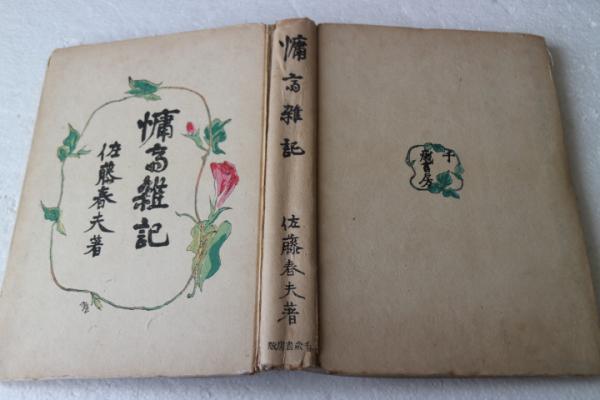 慵斎雑記
佐藤春夫著
慵斎雑記
佐藤春夫著
千歳書房版
千歳書房